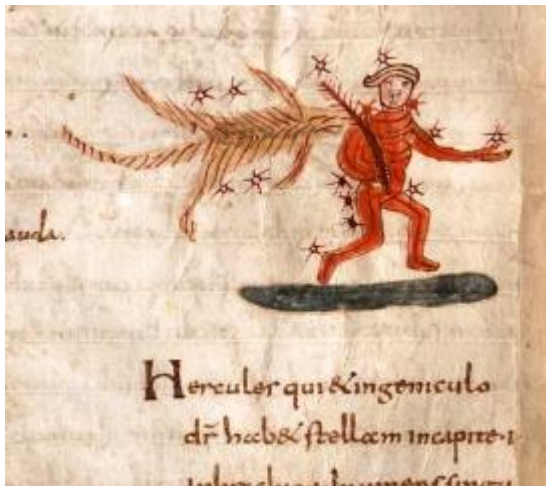 auda.
Hercules qui &ingeniculo
dr̄ hab& stellam incapite·I